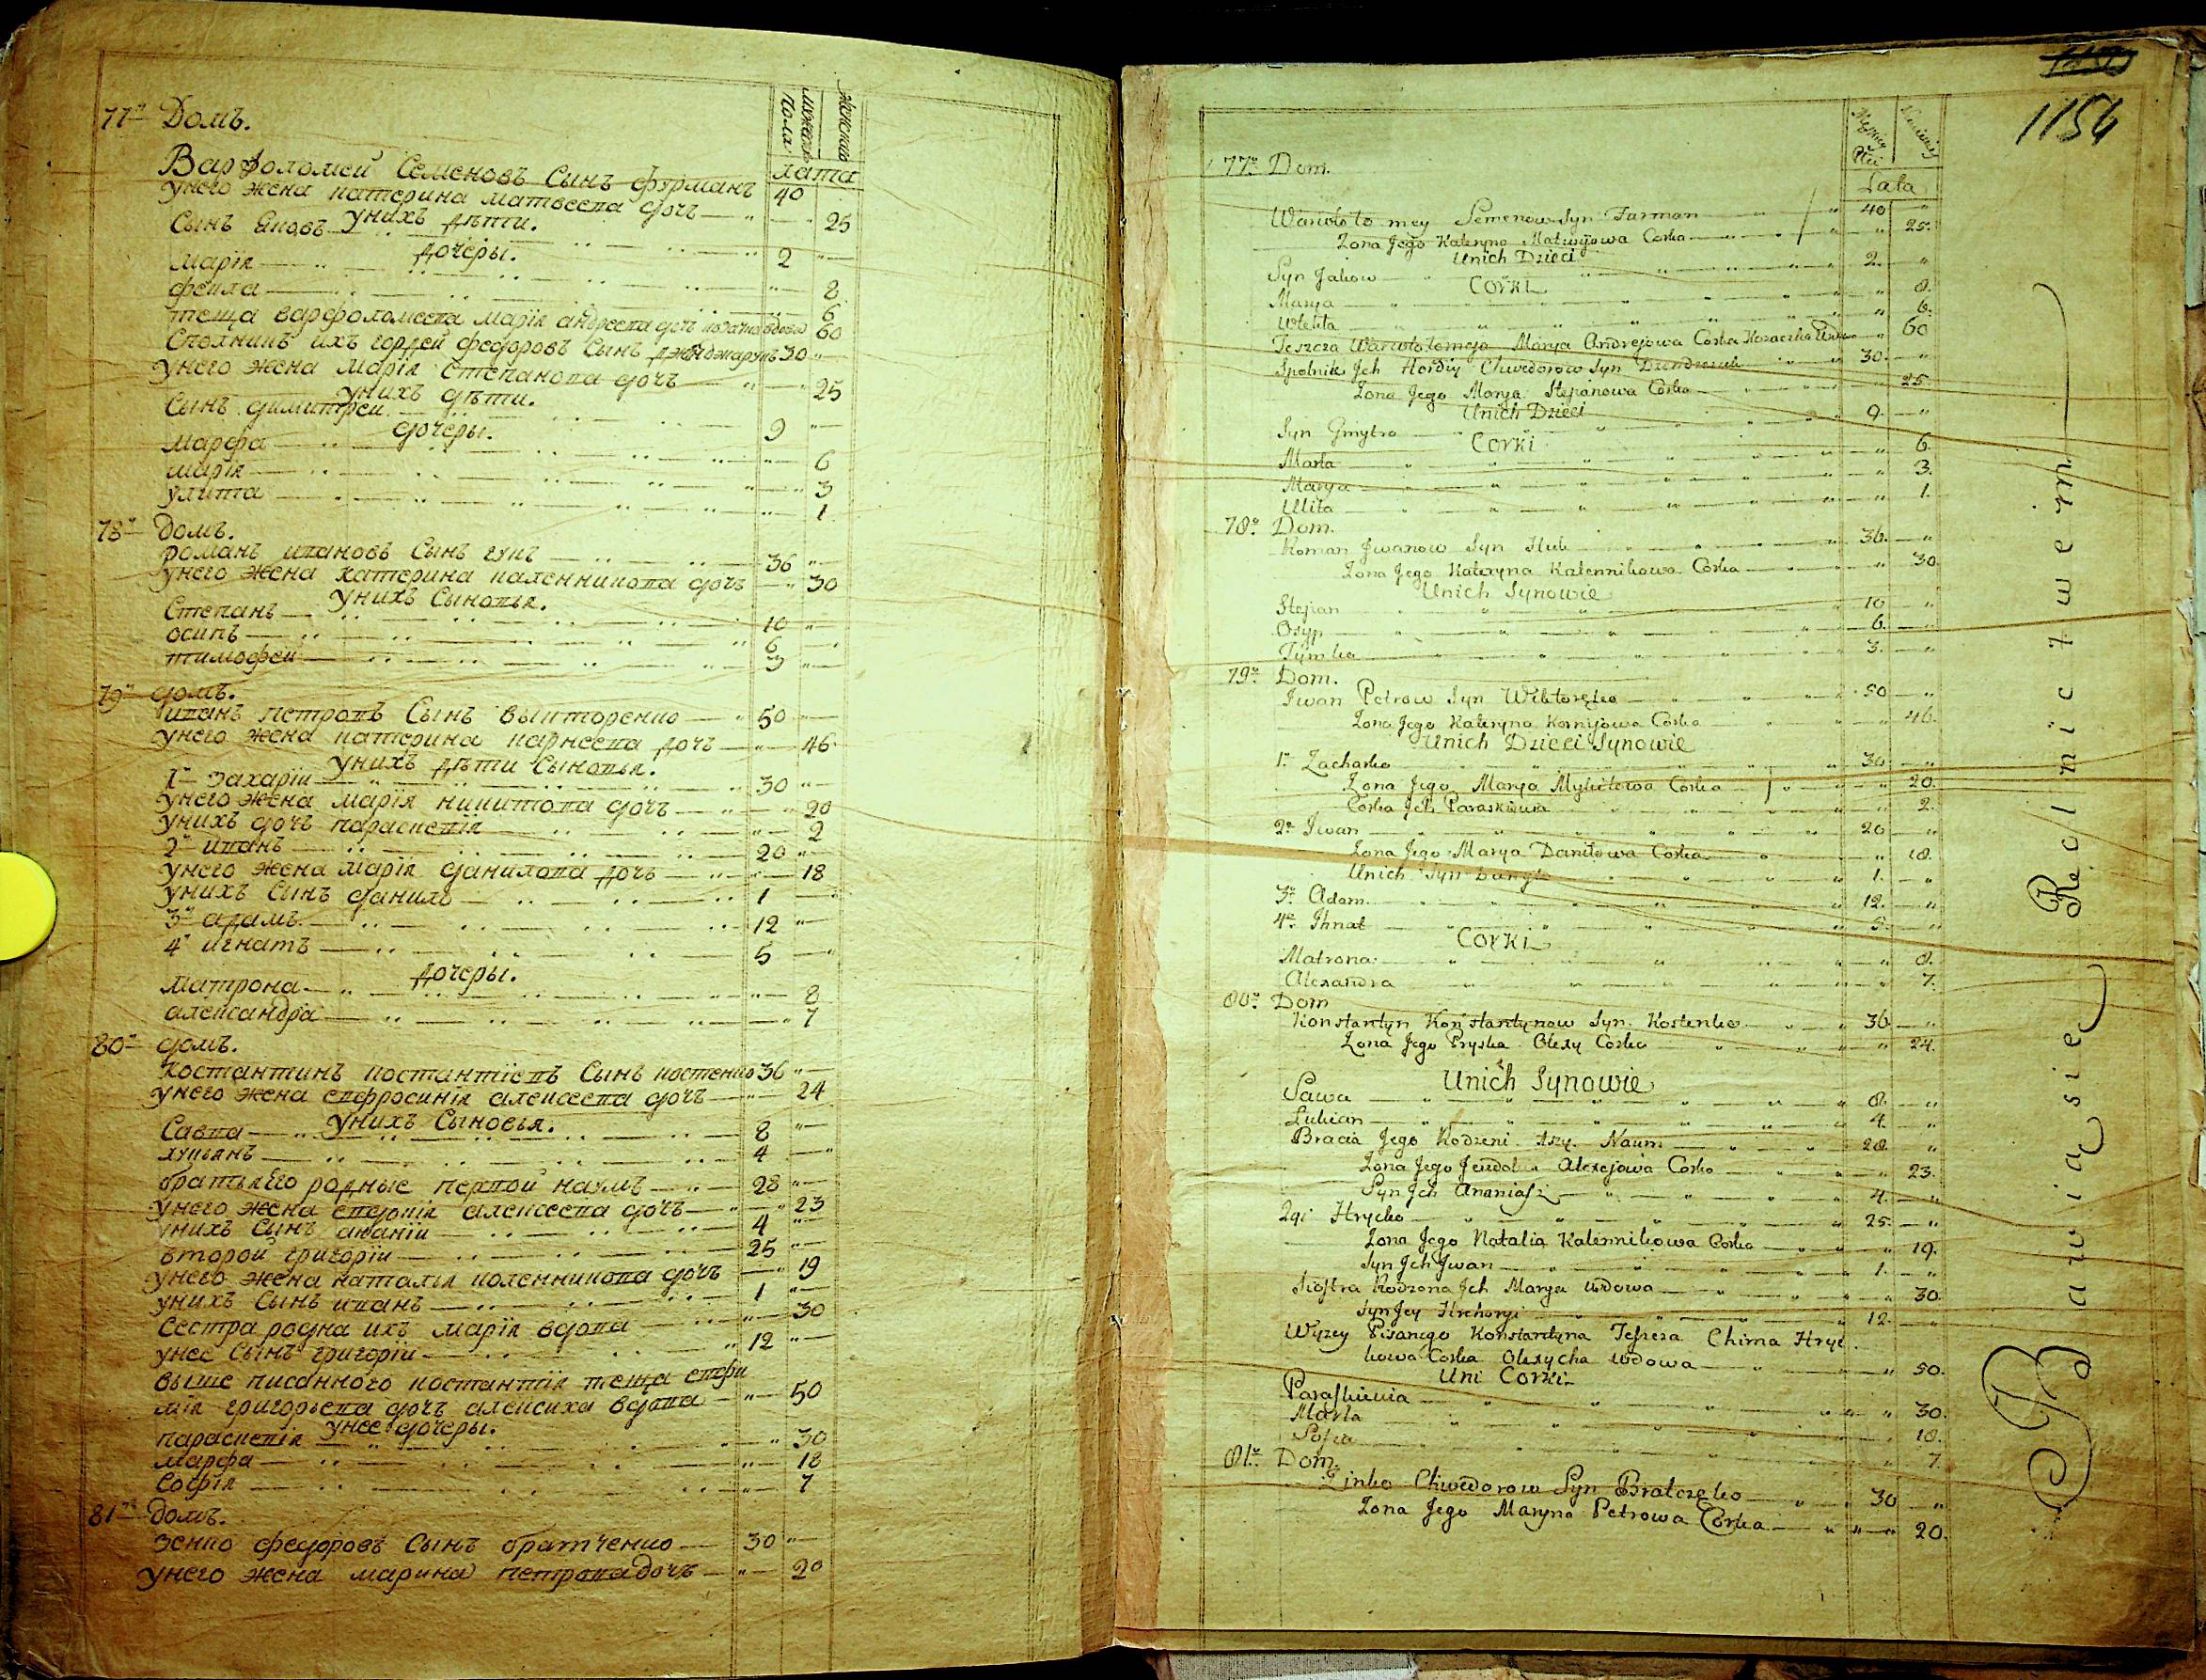 мужеска пола
женского
лѣта
77й Домъ.
Варфоломей Семеновъ Сынъ фурманъ 40
унего жена катерина матвеева дочь 25
унихъ дѣти.
Сынъ Яковъ 2
дочеры.
марія 8
фекла 6
теща варфоломеева марія андреева дочь козачка вдова 60
Сполникъ ихъ гордей федоровъ Сынъ 30
унего жена марія Степанова дочь 25
унихъ дѣти.
Сынъ димитреи 9
дочеры.
марфа 6
марія 3
улита 1
78й домъ.
романъ ивановъ Сынъ гукъ 36
унего жена катерина каленникова дочь 30
унихъ Сыновья.
Степанъ 10
осипъ 6
тимофеи 3
79й домъ.
иванъ петровъ Сынъ выкторенко 50
унего жена катерина карнеева дочь 46
унихъ дѣти Сыновья.
1й захаріи 30
унего жена марія никитова дочь 20
унихъ дочь параскевія 2
2й иванъ 20
унего жена марія данилова дочь 18
унихъ Сынъ данило 1
3й адамъ 12
4й игнатъ 5
дочеры.
матрона 8
александра 7
80й домъ.
Костантинъ костантіевъ Сынъ костенко 36
унего жена евфросинія алексеева дочь 24
унихъ Сыновья.
Савва 8
лукьянъ 4
братья его родные первой наумъ 28
унего жена евдокія алексеева дочь 23
унихъ Сынъ ананіи 4
второй григоріи 25
унего жена наталья коленникова дочь 19
унихъ Сынъ иванъ 1
Сестра родна ихъ марія вдова 30
унее Сынъ григоріи 12
выше писанного костантія теща евфи
мія григорьева дочь алексиха вдова 50
унее дочеры.
параскевія 30
марфа 18
Софія 7
81й домъ.
зенко федоровъ Сынъ братченко 30
унего жена марина петрова дочь 20
1154
Męzkiey Płci
Lata
77o. Dom.
Warwołomey Semenow Syn Furman 40
Zona Jego Kateryna Matwijowa Corka 25.
Unich Dzieci
Syn Jakow 2.
Corki
Marya 8.
Wekla 6.
Teszcza Warwołomeja Marya Andrejowa Corka Kozaczka Wdowa 60
Spolnik Jch Hordiy Chwedorow Syn 30.
Zona Jego Marya Stepanowa Corka 25.
Unich Dzieci
Syn Dmytro 9.
Corki
Marta 6.
Marya 3.
Ulita 1.
78o. Dom.
Roman Jwanow Syn Huk 36.
Zona Jego Kateryna Kalennikowa Corka 30.
Unich Synowie
Stepan 10
Osyp 6.
Tymko 3.
79o. Dom.
Jwan Petrow Syn Wiktoręko 50
Zona Jego Kateryna Kornijowa Corka 46.
Unich Dzieci Synowie
1o Zacharko 30
Zona Jego Marya Mykitowa Corka 20.
Corka Jch Paraskiewia 2.
2o. Jwan 20
Zona Jego Marya Daniłowa Corka 18.
Unich Syn Danyło 1.
3o. Adam 12.
4o. Ihnat 5.
Corki
Matrona 8.
Alexandra 7.
80o. Dom
Konstantyn Konstantynow Syn Kostenko 36
Zona Jego Pryska Olexy Corka 24.
Unich Synowie
Sawa 8.
Lukian 4.
Bracia Jego Rodzeni 1szy. Naum 28.
Zona Jego Alexejowa Corka 23.
Syn Jch Ananiasz 4.
2gi Hrycko 25.
Zona Jego Natalia Kalennikowa Corka 19.
Syn Jch Jwan 1.
Siostra Rodzona Jch Marya wdowa 30
Syn Jey Hrehory 12.
Wyzey Pisanego Konstantyna Teszcza Chima Hryc
kowa Corka Olexycha wdowa 50.
Uni Corki
Paraskiewia 30.
Marta 18.
Sofia 7.
81o. Dom.
Zinko Chwedorow Syn Bratczęko 30
Zona Jego Maryna Petrowa Corka 20.
Bawia sie